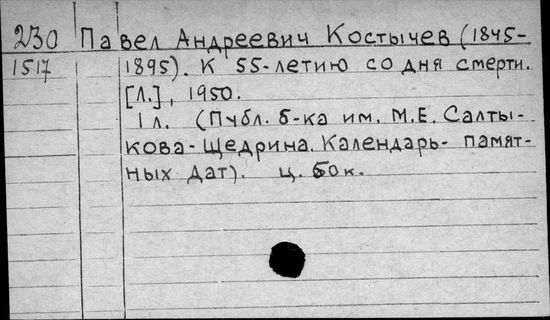 230 Павел Андреевич Костычев (1845-
1517 1895). К 55-летию со дня смерти.
[Л.], 1950.
1 л. (Публ. б-ка им. М.Е. Салты-
кова-Щедрина. Календарь памят-
ных дат). ц. 50 к.